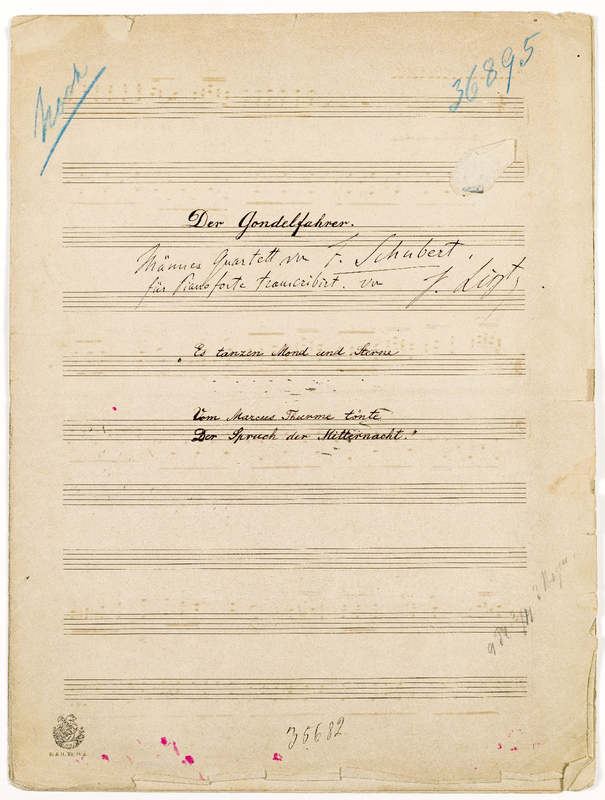 36895
Der Gondelfahrer.
Männer Quartett von F. Schubert,
für Pianoforte transcribirt. von F. Liszt,
„Es tanzen Mond und Sterne
Vom Marcus Thurme tönte
Der Spruch der Mitternacht."
35682